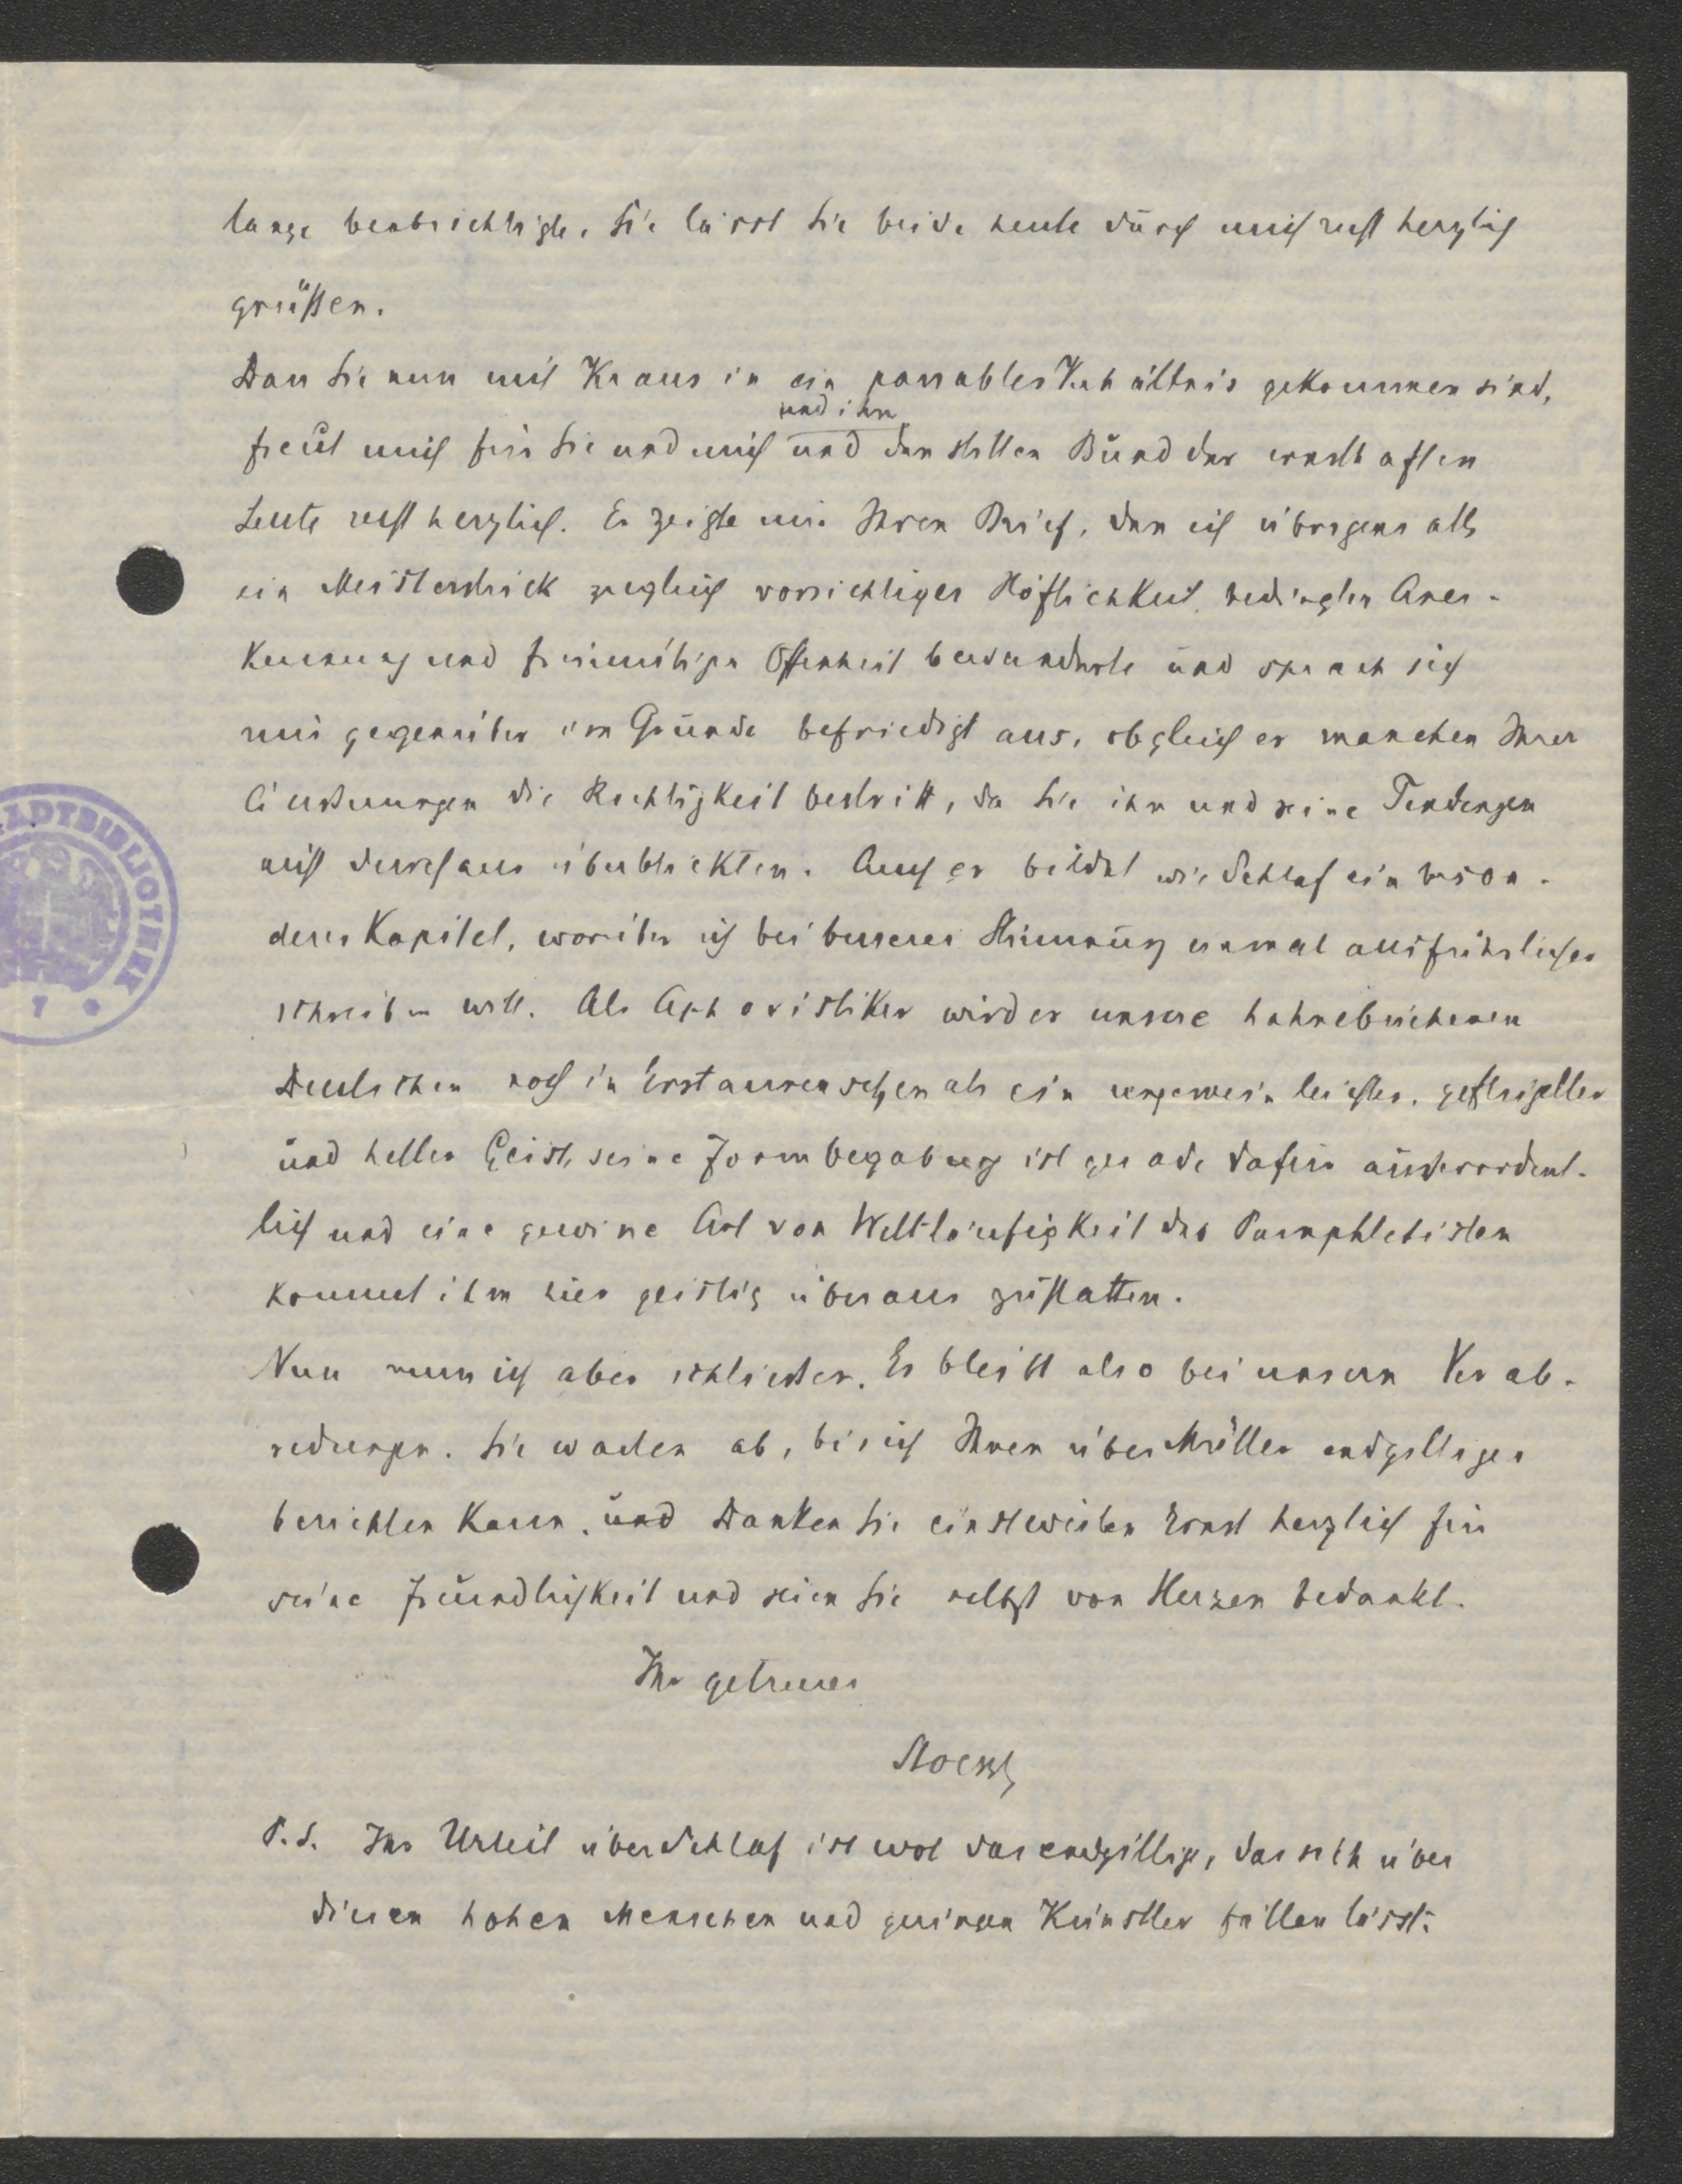 lange beabsichtigte. Sie lässt Sie beide heute durch mich recht herzlich
grüßen.
Dass Sie nun mit Kraus in ein passables Verhältnis gekommen sind,
und ihn
freut mich für Sie und mich und den stillen Bund der ernsthaften
Leute recht herzlich. Er zeigte mir Ihren Brief, den ich übrigens als
ein Meisterstück zugleich vorsichtiger Höflichkeit, bedingter Aner-
kennung und freimütiger Offenheit bewunderte und sprach sich
mir gegenüber im Grunde befriedigt aus, obgleich er manchen Ihrer
Äusserungen die Richtigkeit bestritt, da Sie ihn und seine Tendenzen
nicht durchaus überblickten. Auch er bildet wie Schlaf ein beson-
deres Kapitel, worüber ich bei besserer Stimmung einmal ausführlicher
schreiben will. Als Aphoristiker wird er unsere hahnebüchenen
Deutschen noch in Erstaunen setzen als ein ungemein leichter, geflügelter
und heller Geist, seine Formbegabung ist gerade dafür ausserordent-
lich und eine gewisse Art von Weltläufigkeit des Pamphletisten
kommt ihm hier geistig überaus zustatten.
Nun muss ich aber schliessen. Es bleibt also bei unsern Verab-
redungen. Sie warten ab, bis ich Ihnen über Müller endgiltiges
berichten kann. und Danken Sie einstweilen Ernst herzlich für
seine Freundlichkeit und seien Sie selbst von Herzen bedankt.
Ihr getreuer
Stoessl
P.S. Ihr Urteil über Schlaf ist wol das endgiltige, das sich über
diesen hohen Menschen und geringen Künstler fällen lässt.
STADTBIBLIOTHEK